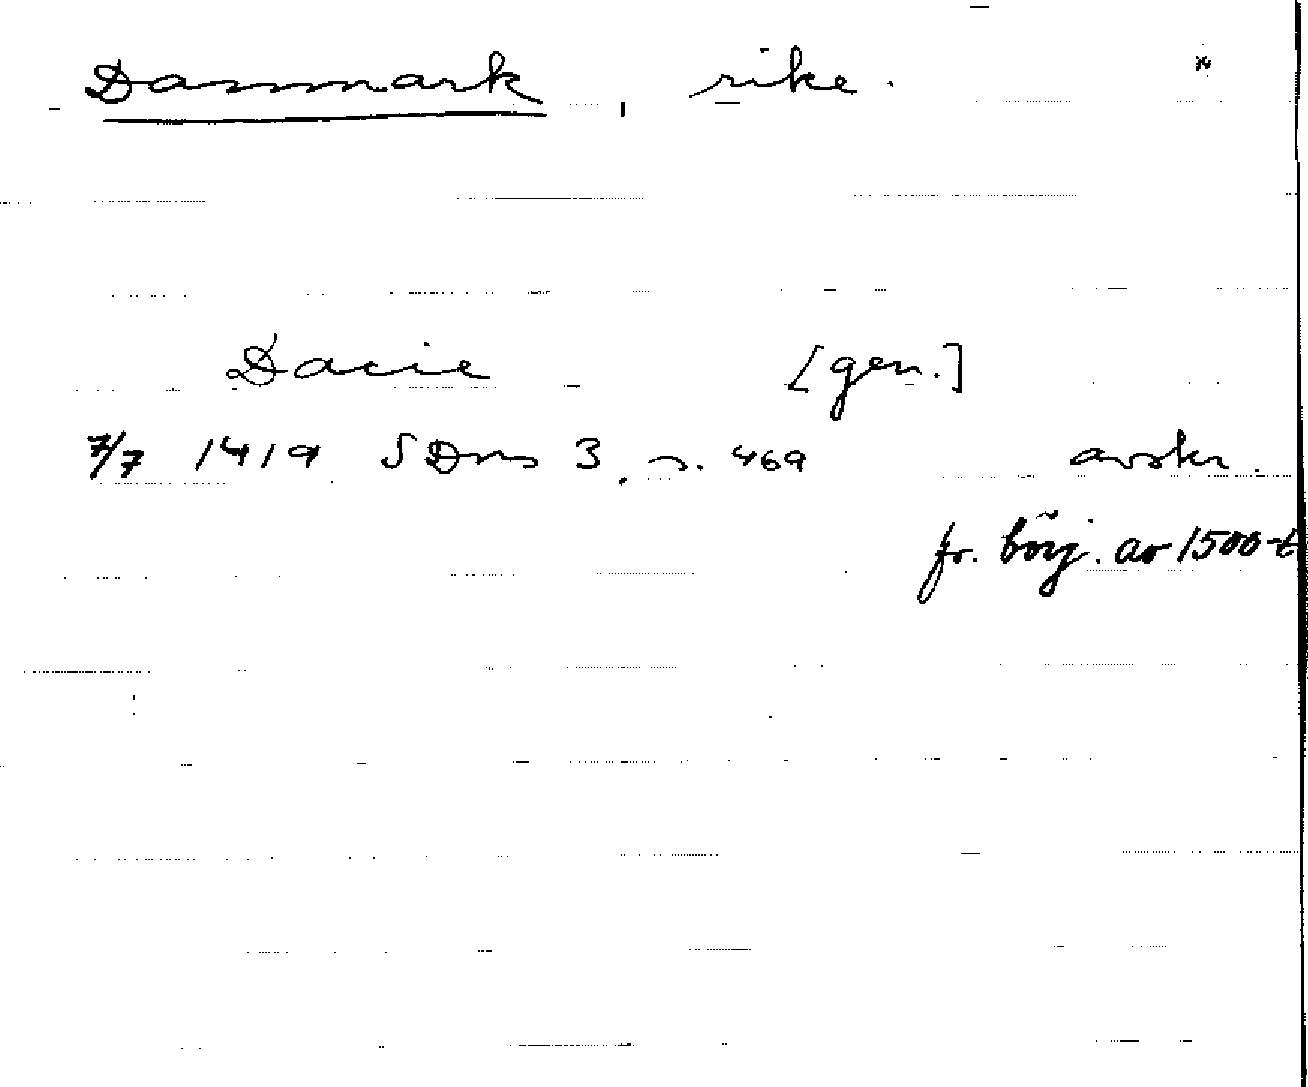 Danmark, rike.
Dacie [gen.]
7/7 1419 SDns 3, s. 469 avskr.
fr. börj. av 1500-t